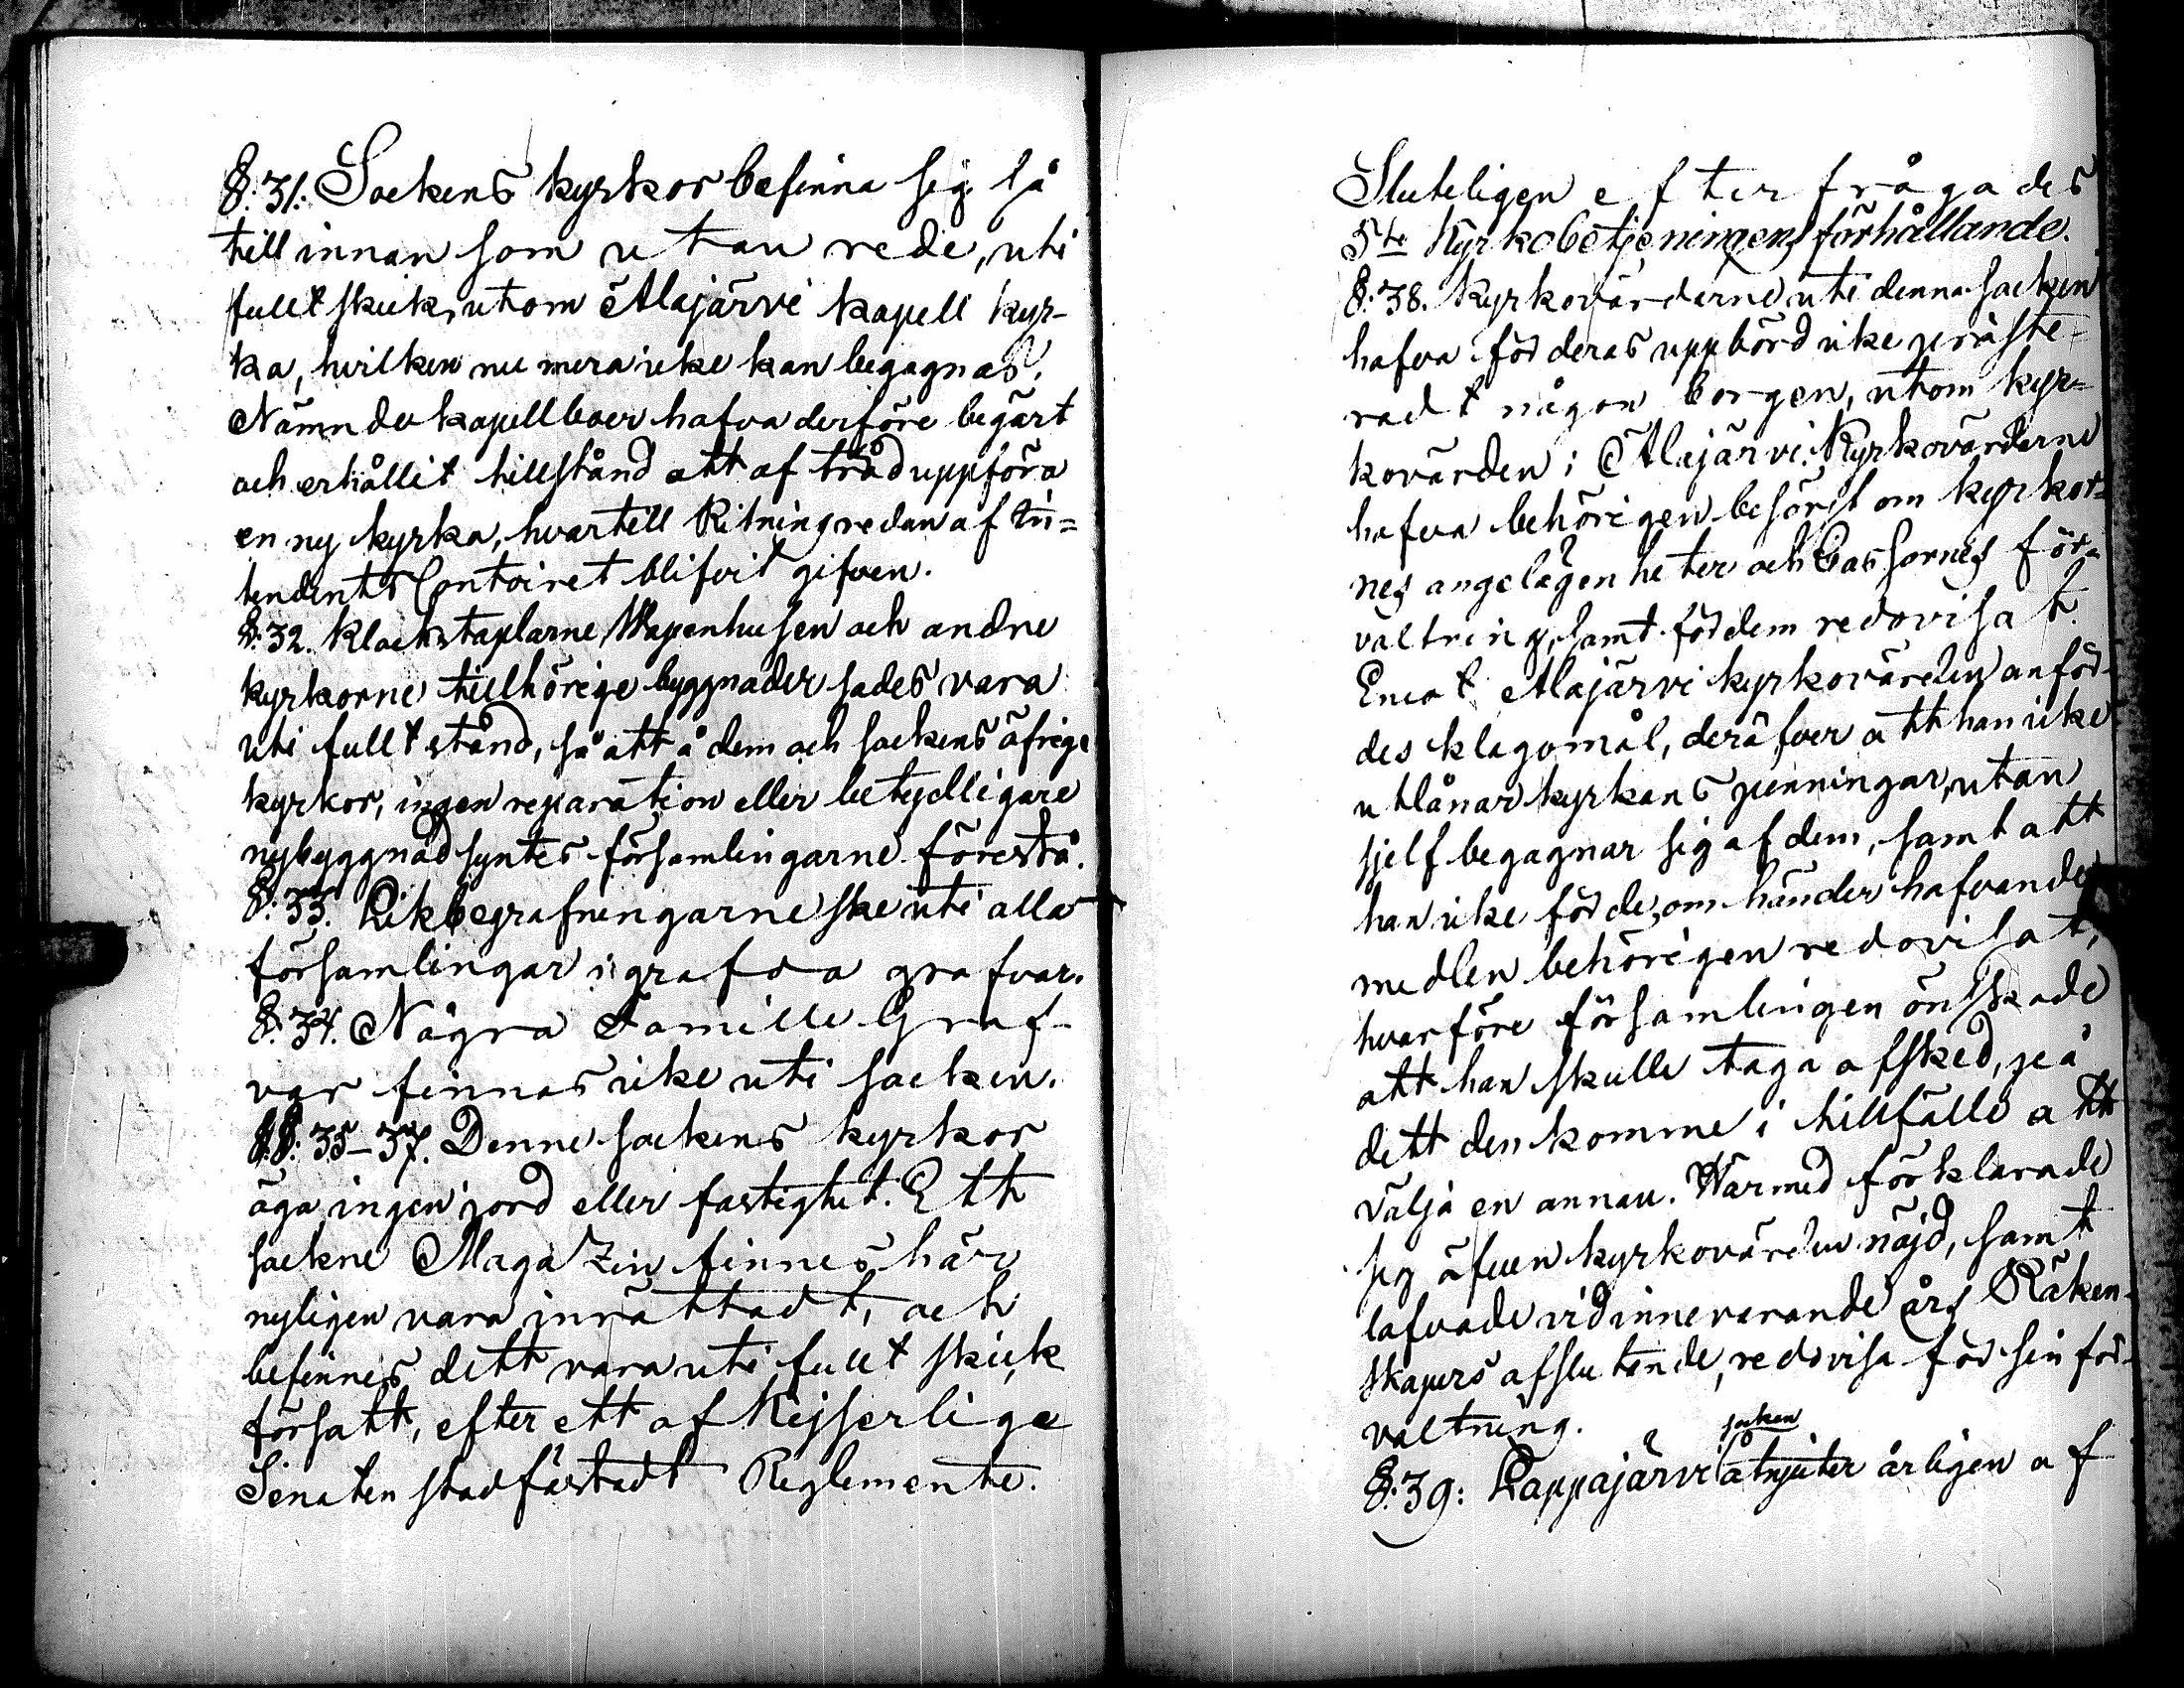 §. 31. Sockens kyrkor befinna sig så
till innan som utan rede, uti
fullt skick, utom Alajärvi kapell kyr-
ka, hvilken nu mera icke kan begagnas.
Nämnde kapellboer hafva derföre begärt
och erhållit tillstånd att af träd uppföra
en ny kyrka, hvartill Ritning redan af In=
tendents Contoiret blifvit gifven.
§. 32. Klockstaplarne, Wapenhusen och andre
kyrkorne tillhörige byggnader sades vara
uti fullt stånd, så att å dem och sockens öfrige
kyrkor, ingen reparation eller betydligare
nybyggnad syntes församlingarne förestå.
§. 33. Likbegrafningarne ske uti alla
församlingar i grafda grafvar.
§. 34. Några Famille Graf-
var finnas icke uti socken.
§.§. 35-37. Denne sockens kyrkor
äga ingen jord eller fastighet. Ett
sockne Magazin finnes här
nyligen vara inrättadt, och
befinnes dett vara uti fullt skick
försatt, efter ett af Kejserliga
Senaten stadfästadt Reglemente.
Sluteligen efterfrågades
5te Kyrkobetjeningens förhållande.
§. 38. Kyrkovärderne uti denna socken
hafva för deras uppbörd icke præste=
radt någon borgen, utom kyr=
kovärden i Alajärvi. Kyrkovärderne
hafva behörigen besörjt om kyrkor=
nes angelägenheter och Cassornes för=
valtning, samt för dem redovisat.
Emot Alajärvi kyrkovärden anför-
des klagomål, deröfver att han icke
utlånar kyrkans penningar, utan
sjelf begagnar sig af dem, samt att
han icke för de, om händer hafvande
medlen behörigen redovisat,
hvarföre församlingen önskade
att han skulle taga afsked, på
dett den komme i tillfälle att
välja en annan. Härmed förklarade
sig äfven kyrkovärden nöjd, samt
lofvade vid innevarande års Räken-
skapers afslutende, redovisa för sin för-
valtning.
socken
§. 39: Lappajärvi åtnjuter årligen af